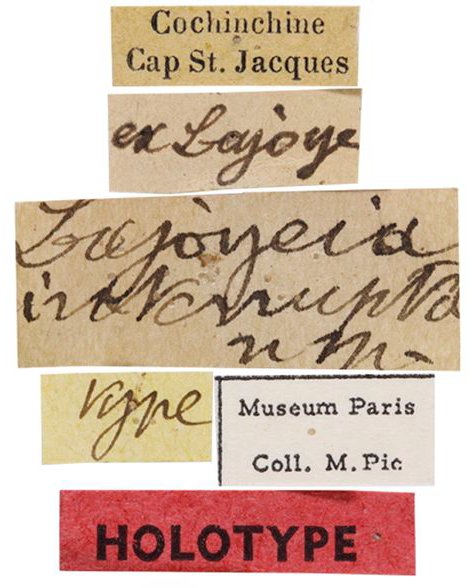 Cochinchine
Cap St. Jacques
ex Lajoye
Lajoyeia
interrupta
n m.
type
Museum Paris
Coll. M. Pic
HOLOTYPE